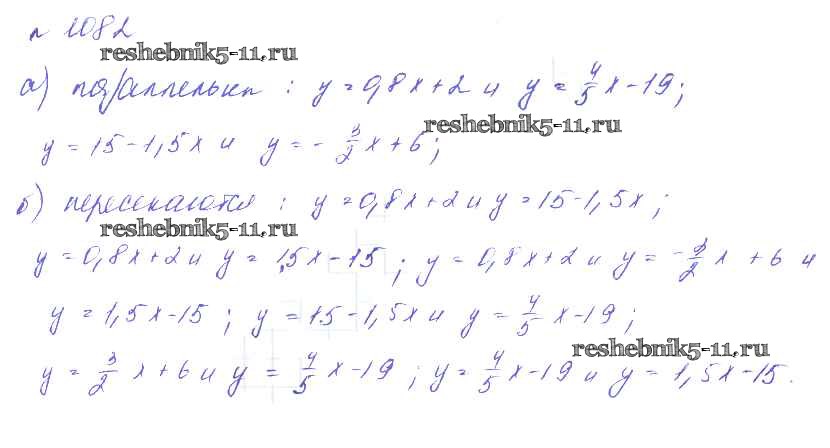 № 1082
reshebnik5-11.ru
а) параллельны : y = 0,8x+2 и y = 4/5 x - 19;
reshebnik5-11.ru
y = 15 - 1,5x и y = - 3/2 x + 6;
б) пересекаются : y = 0,8x+2 и y = 15 - 1,5x;
reshebnik5-11.ru
y = 0,8x+2 и y = 1,5x - 15; y = 0,8x+2 и y = - 3/2 x + 6 и
y = 1,5x - 15; y = 15 - 1,5x и y = 4/5 x - 19;
reshebnik5-11.ru
y = 3/2 x + 6 и y = 4/5 x - 19; y = 4/5 x - 19 и y = 1,5x - 15.